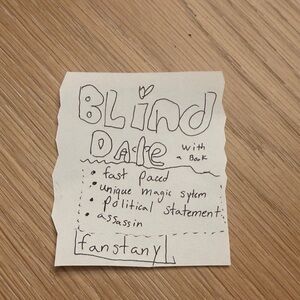 BLind
DAte
with
a Book
• fast paced
• unique magic sytem
• political statement
• assassin
fanstany